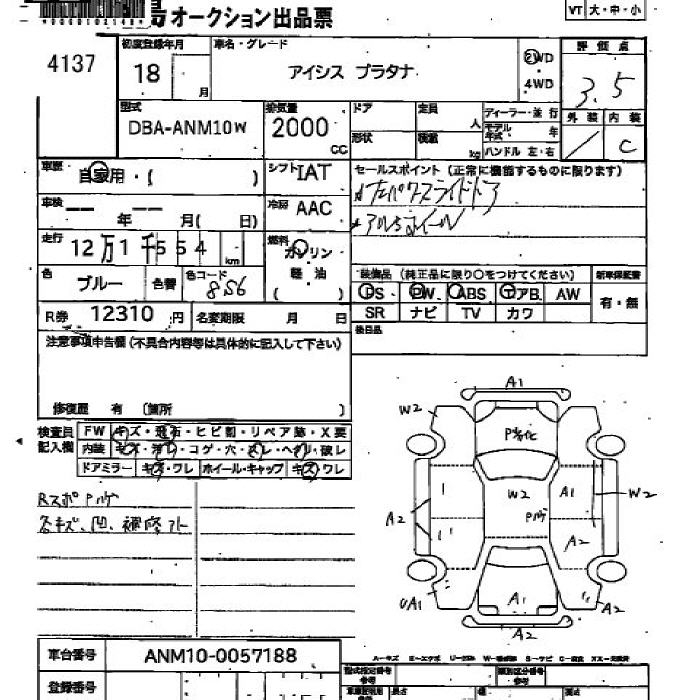 オークション出品票
VT 大・中・小
4137
初度登録年月 車名・グレード 評価点
18 月 アイシス プラタナ 2WD 4WD 3.5
型式 排気量 ドア 定員 人 ディーラー・並行 外装 内装
DBA-ANM10W 2000 CC 形状 積載 kg モデル年式 年 ハンドル 左・右 / C
車歴 自家用・( ) シフト IAT セールスポイント (正常に機能するものに限ります)
車検 年 月( 日) 冷房 AAC アルミホイール
走行 12万1千554 km 燃料 ガソリン 軽油 ( )
装備品 (純正品に限り○をつけてください) 新車保証書
色 ブルー 色替 色コード 8S6 PS PW ABS エアB AW 有・無
SR ナビ TV カワ
R券 12310 円 名変期限 月 日 後日品
注意事項申告欄(不具合内容等は具体的に記入して下さい)
修復歴 有 (箇所 )
検査員記入欄 FW キズ・飛石・ヒビ割・リペア跡・X要
内装 キズ・汚レ・コゲ・穴・スレ・ヘタリ・破レ
ドアミラー キズ・ワレ ホイール・キャップ キズ・ワレ
RスポPハゲ
各キズ、凹、補修アト
A1
W2
P劣化
W2 A1 W2
Pハゲ
A2 A2
UA1 A1 A2
A2
車台番号 ANM10-0057188
A-キズ E-エクボ
登録番号 型式指定番号 参考 類別区分番号 参考
長さ